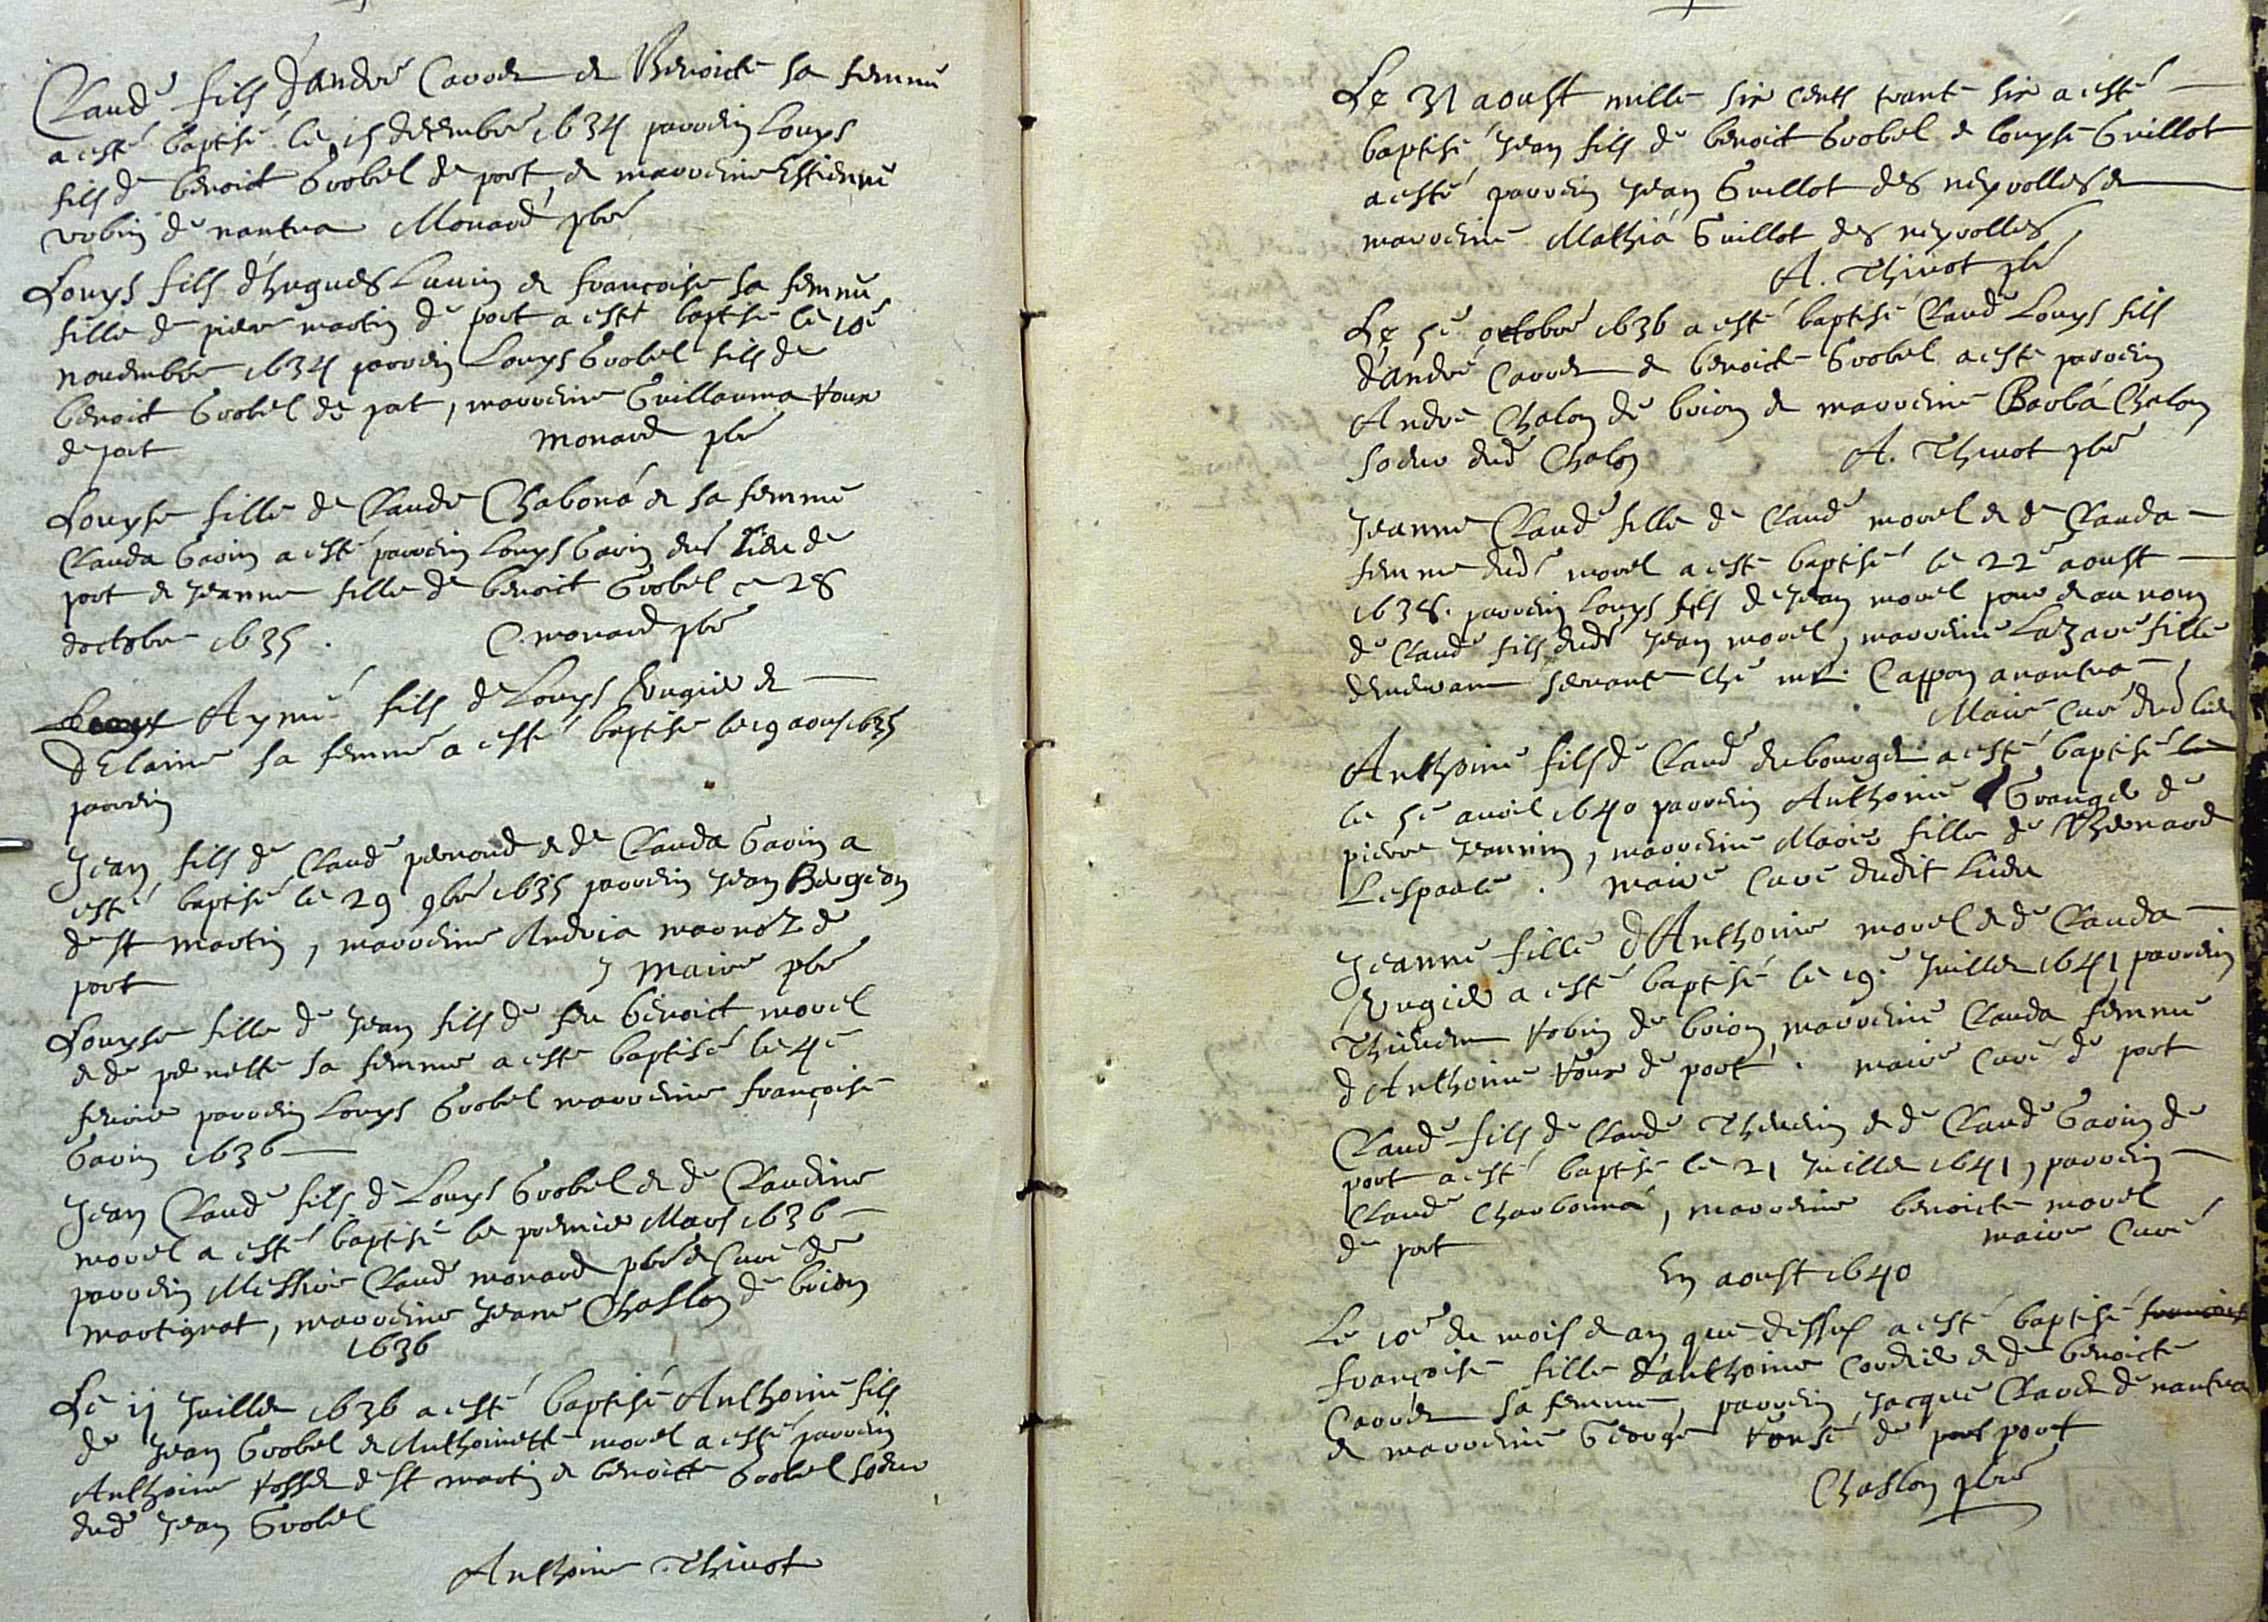 Claude fils d'André Carrier et Benoicte sa femme
a esté baptisé le 15 decembre 1634 parrein Louys
fils de benoict Grobel de port, et marreine Estienne
robin de nantua Monard pbre
Louys fils d'hugues et françoise sa femme
fille de pierre martin de port a esté baptisé le 10e
novembre 1634 parrein Louys Grobel fils de
benoict Grobel de port, marreine Guillauma roux
de port monard pbre
Louyse fille de Claude Chabona et sa femme
Clauda Gavin a esté parrein Louys Gavin dud lieu de
port et Jeanne fille de benoict Grobel ce 28
doctobre 1635. C. monard pbre
Aymé fils de Louys et
d'Elaine sa femme a esté baptisé le 19 aoust 1635
parrein
Jean fils de Claude pernoud et de Clauda Gavin a
esté baptisé le 29 9bre 1635 parrein Jean Bergeon
de st martin, marreine Andria de
port J maire pbre
Louyse fille de Jean fils de feu benoict morel
et de pernette sa femme a esté baptisé le 4e
fevrier parrein Louys Grobel marreine françoise
Gavin 1636
Jean Claude fils de Louys Grobel et de Claudine
morel a esté baptisé le premier Mars 1636
parrein Messire Claude monard pbre et Curé de
martignat, marreine Jeanne Chaslon de brion
1636
Le 11 Juillet 1636 a esté baptisé Anthoine fils
de Jean Grobel et Anthoinette morel a esté parrein
Anthoine rosset de st martin et benoitte Grobel soeur
dud Jean Grobel
Anthoine Thivot
Le 31 aoust mille six cents trante six a esté
baptisé Jean fils de benoict Grobel et louyse Guillot
a esté parrein Jean Guillot des neyrolles et
marreine Mathia Guillot des neyrolles
A. Thivot pbre
Le 5e octobre 1636 a esté baptisé Claude Louys fils
d'andré Carrier et benoicte Grobel a esté parrein
André Chalon de brion et marreine Barba Chalon
soeur dud Chalon A. Thivot pbre
Jeanne Claude fille de Claude morel et de Clauda
femme dud morel a esté baptisé le 22e aoust
1638. parrein Louys fils de Jean morel pour et au nom
de Claude fils dud Jean morel, marreine Lazare fille
servante ché mr. Cappon a nantua
Maire Curé dud lieu
Anthoine fils de Claude du bourget a esté baptisé le
le 5e avril 1640 parrein Anthoine Granget de
pierre Jeannin, marreine Marie fille de Bernard
Lesparle. maire Curé dudit Lieu
Jeanne fille d'Anthoine morel et de Clauda
a esté baptisé le 19e Juillet 1641 parrein
robin de brion, marreine Clauda femme
d'Anthoine roux de port. maire Curé de port
Claude fils de Claude Thevenin et de Claude Gavin de
port a esté baptisé le 21 Juillet 1641, parrein
Claude Charbonna, marreine benoicte morel
de port maire Curé
En aoust 1640
Le 10e du mois et an que dessus a esté baptisé francois
françoise fille d'anthoine Cordier et de benoicte
Carrier sa femme, parrein Jacque Claret de nantua
et marreine George de port port
Chaslon pbre